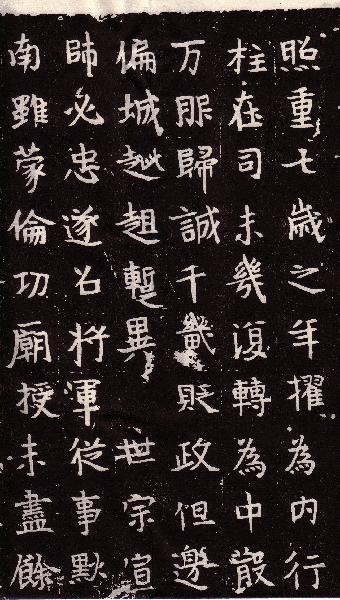 照重七歲之年擢為內行
柱在司未幾復轉為中散
万服歸誠千畿貶政但邊
偏城趑趄蹔異世宗宣
師必忠遂召將軍從事默
南雖蒙倫功廟授未盡餘